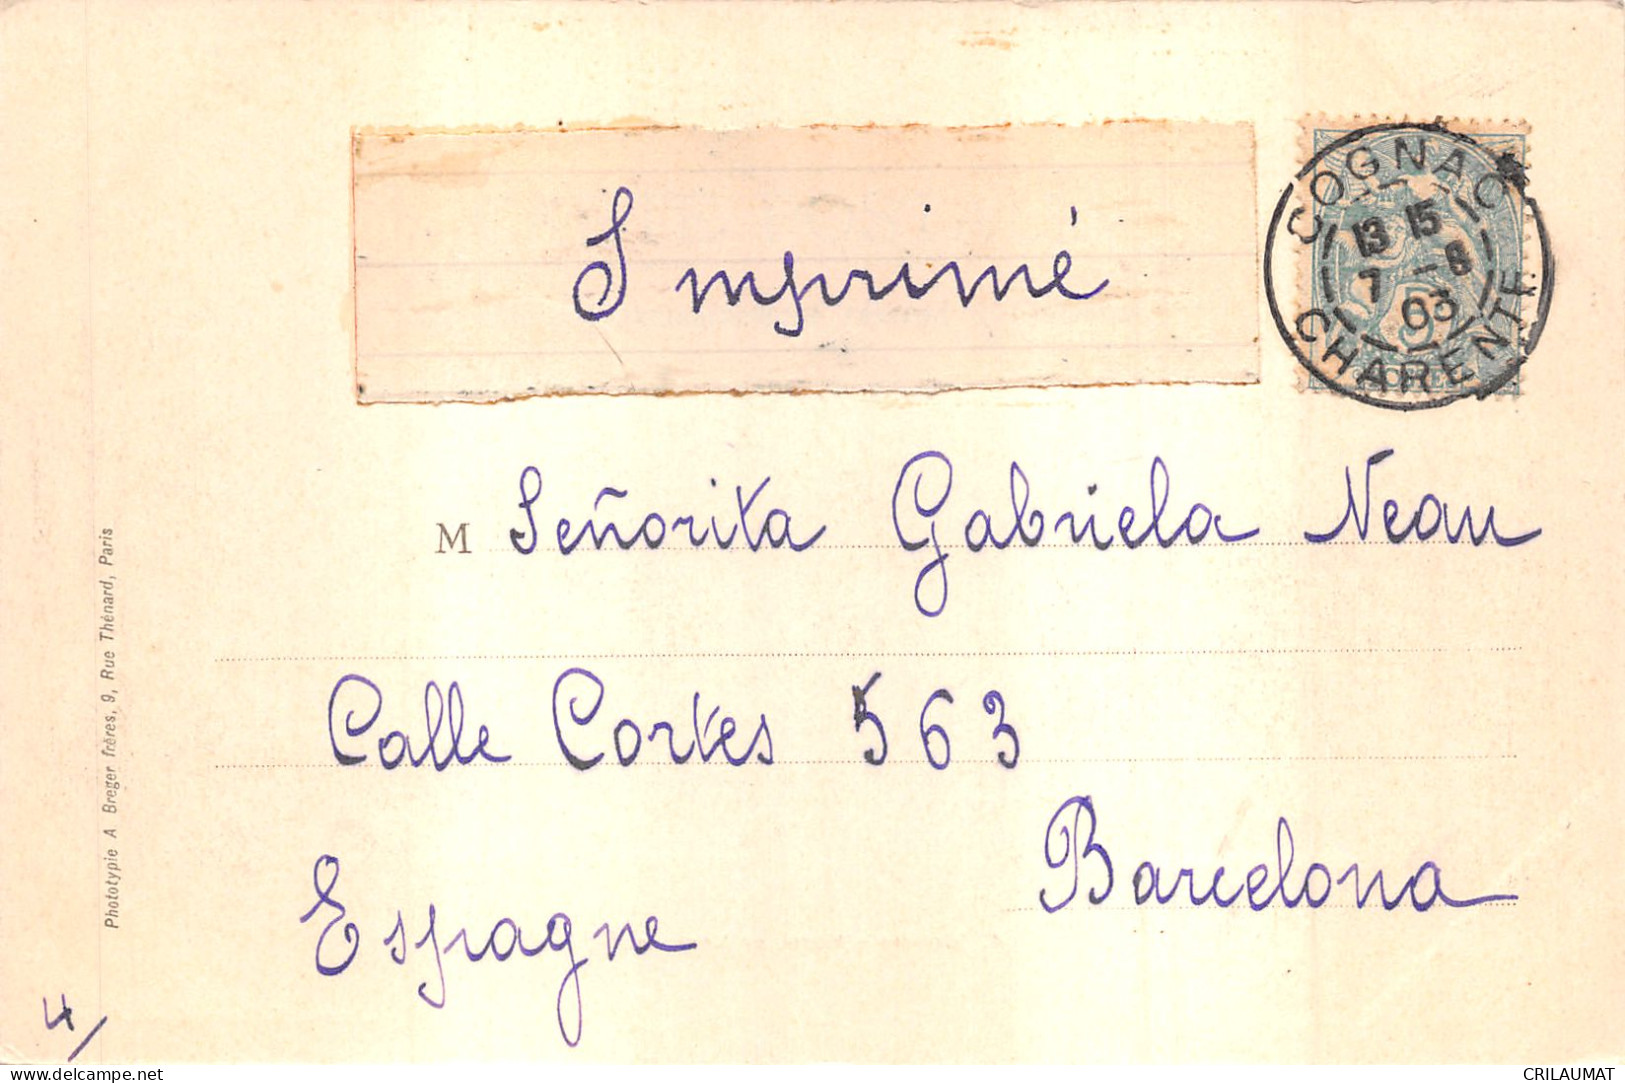 Imprimé
COGNAC
13 15
7 -8
03
CHARENTE
M Señorita Gabriela Neau
Calle Cortes 563
Barcelona
Espagne
4/
Phototypie A Breger frères, 9, Rue Thénard, Paris
delcampe.net
CRILAUMAT